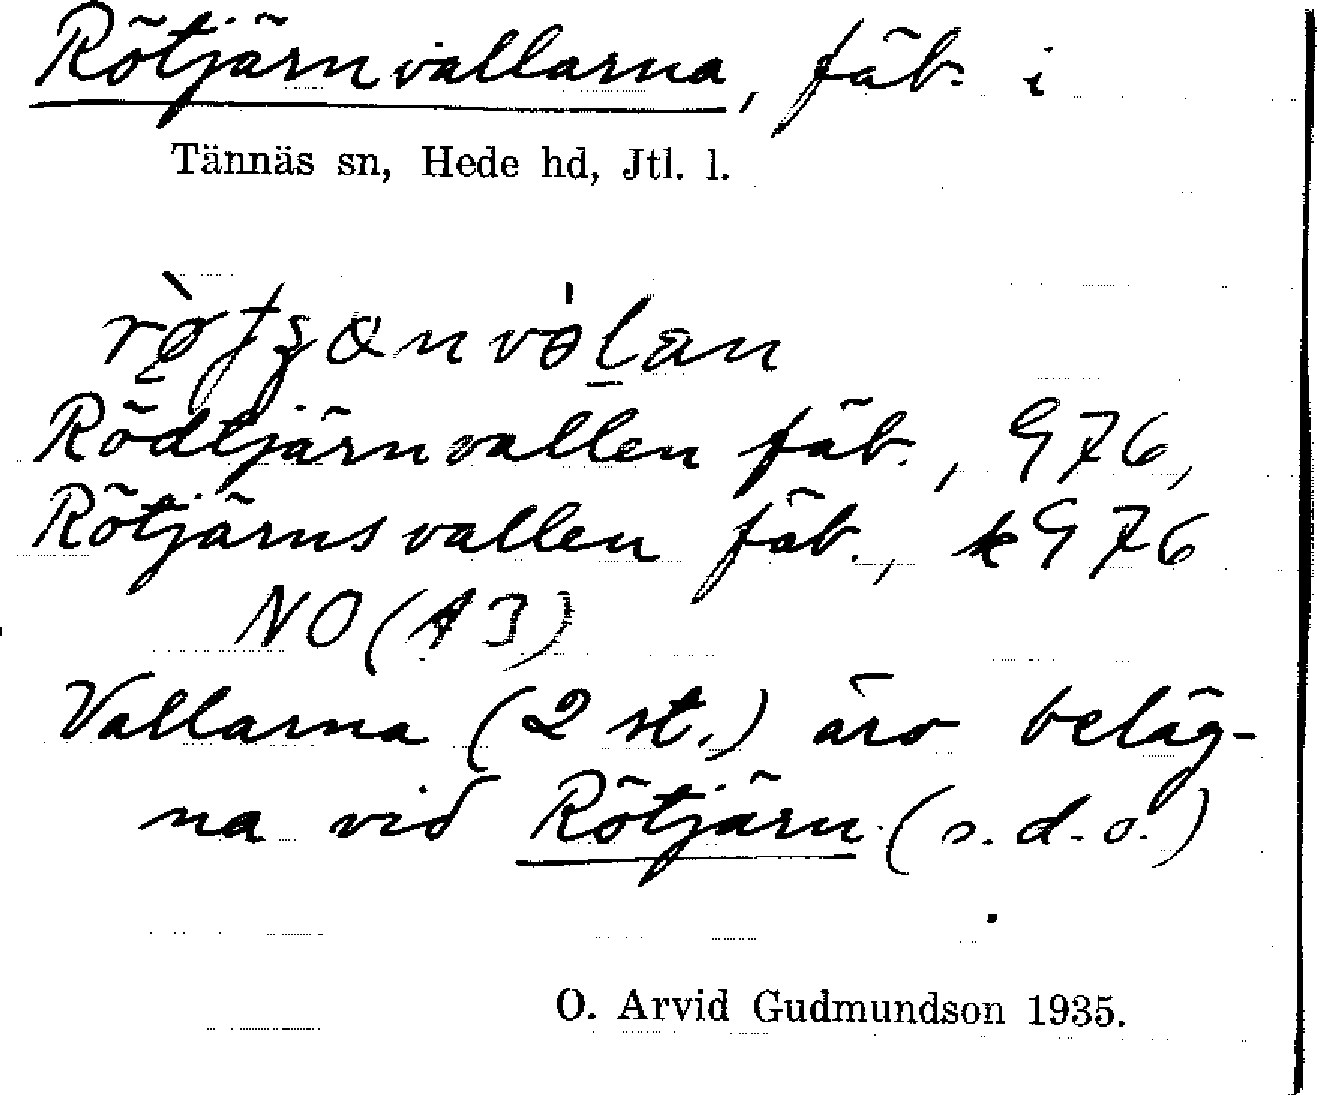 Rötjärnvallarna, fäb. i
Tännäs sn, Hede hd, Jtl. l.
Rödtjärnvallen fäb., G 76,
Rötjärnsvallen fäb., k G 76
NO (A 3)
Vallarna (2 st.) äro beläg-
na vid Rötjärn (s. d. o.)
O. Arvid Gudmundson 1935.